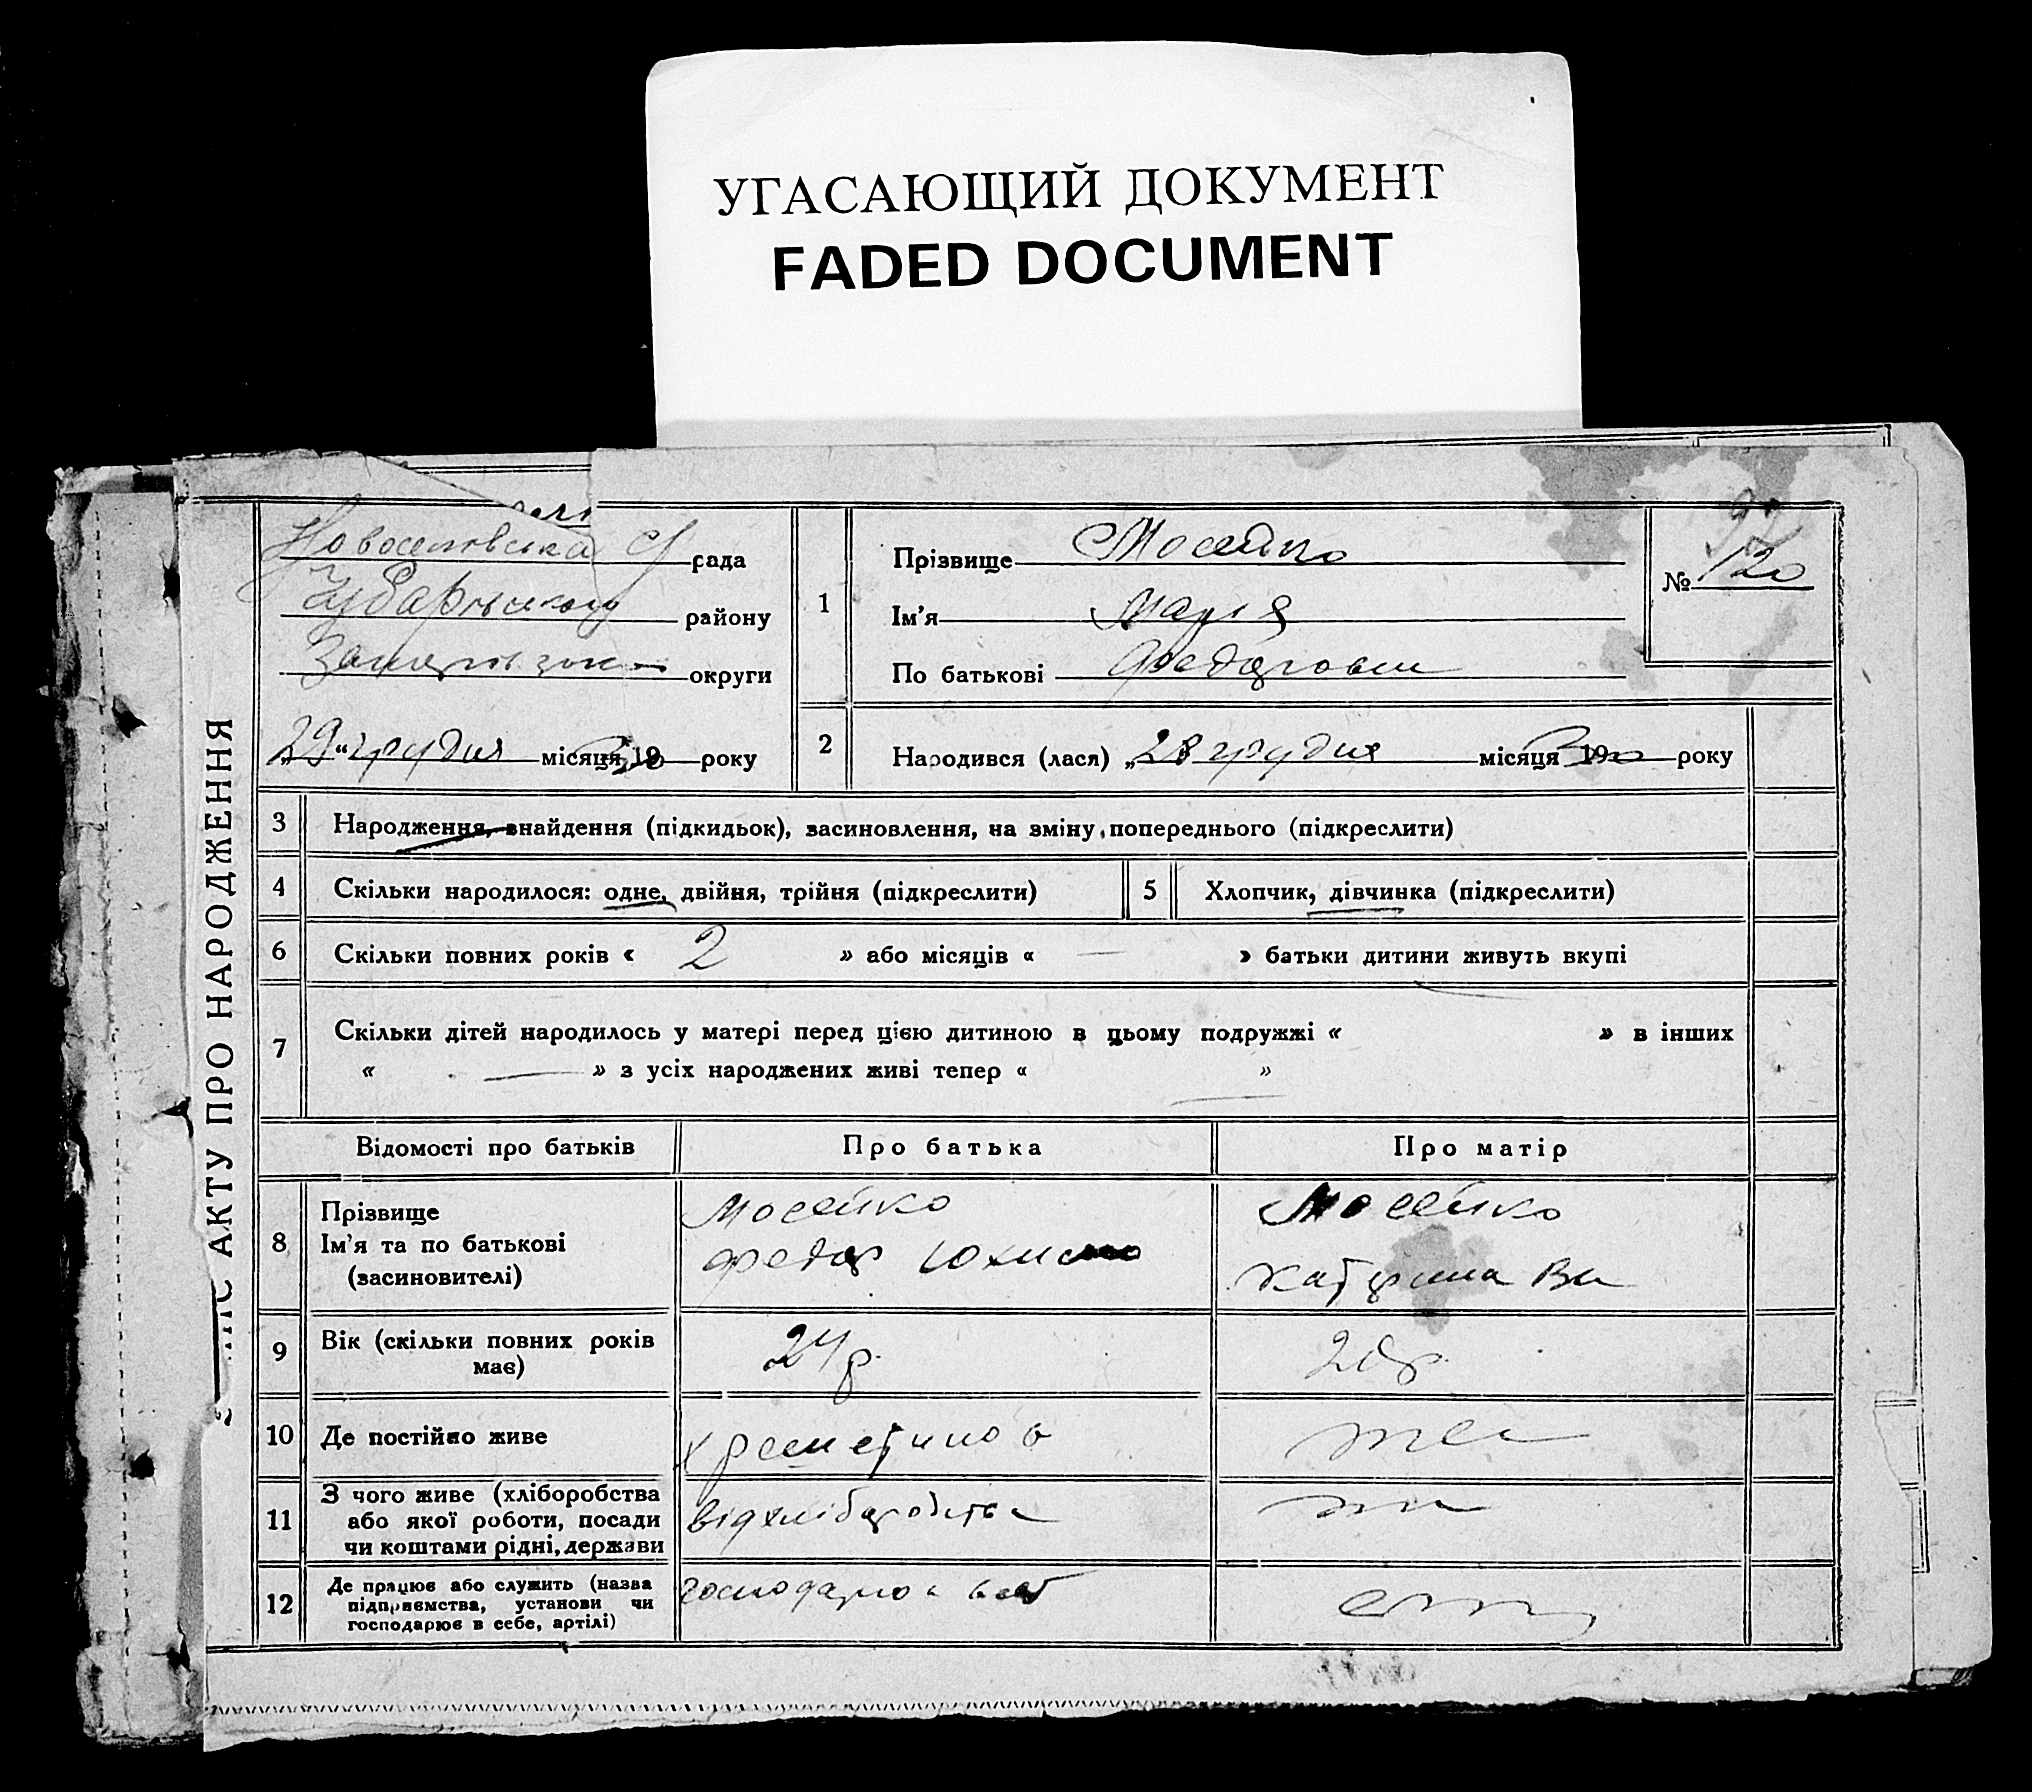 УГАСАЮЩИЙ ДОКУМЕНТ
FADED DOCUMENT
АКТУ ПРО НАРОДЖЕННЯ
Новоселовська С/рада
Чубарівського району
округи
„29“ грудня місяця 1930 року
1
Прізвище Мосейко
Ім’я Марія
По батькові Федоровна
97
№ 120
2
Народився (лася) „28 грудня місяця 1930 року
3 Народження, знайдення (підкидьок), засиновлення, на зміну попереднього (підкреслити)
4 Скільки народилося: одне, двійня, трійня (підкреслити) 5 Хлопчик, дівчинка (підкреслити)
6 Скільки повних років « 2 » або місяців « — » батьки дитини живуть вкупі
7 Скільки дітей народилось у матері перед цією дитиною в цьому подружжі « » в інших
« — » з усіх народжених живі тепер « — »
Відомості про батьків Про батька Про матір
8 Прізвище Мосейко Мосейко
Ім’я та по батькові Федор Юхимо Катерина Ва
(засиновителі)
9 Вік (скільки повних років 24 р.
має)
10 Де постійно живе
11 З чого живе (хліборобства
або якої роботи, посади від хліборобства
чи коштами рідні, держави
12 Де працює або служить (назва
підприємства, установи чи
господарює в себе, артілі)